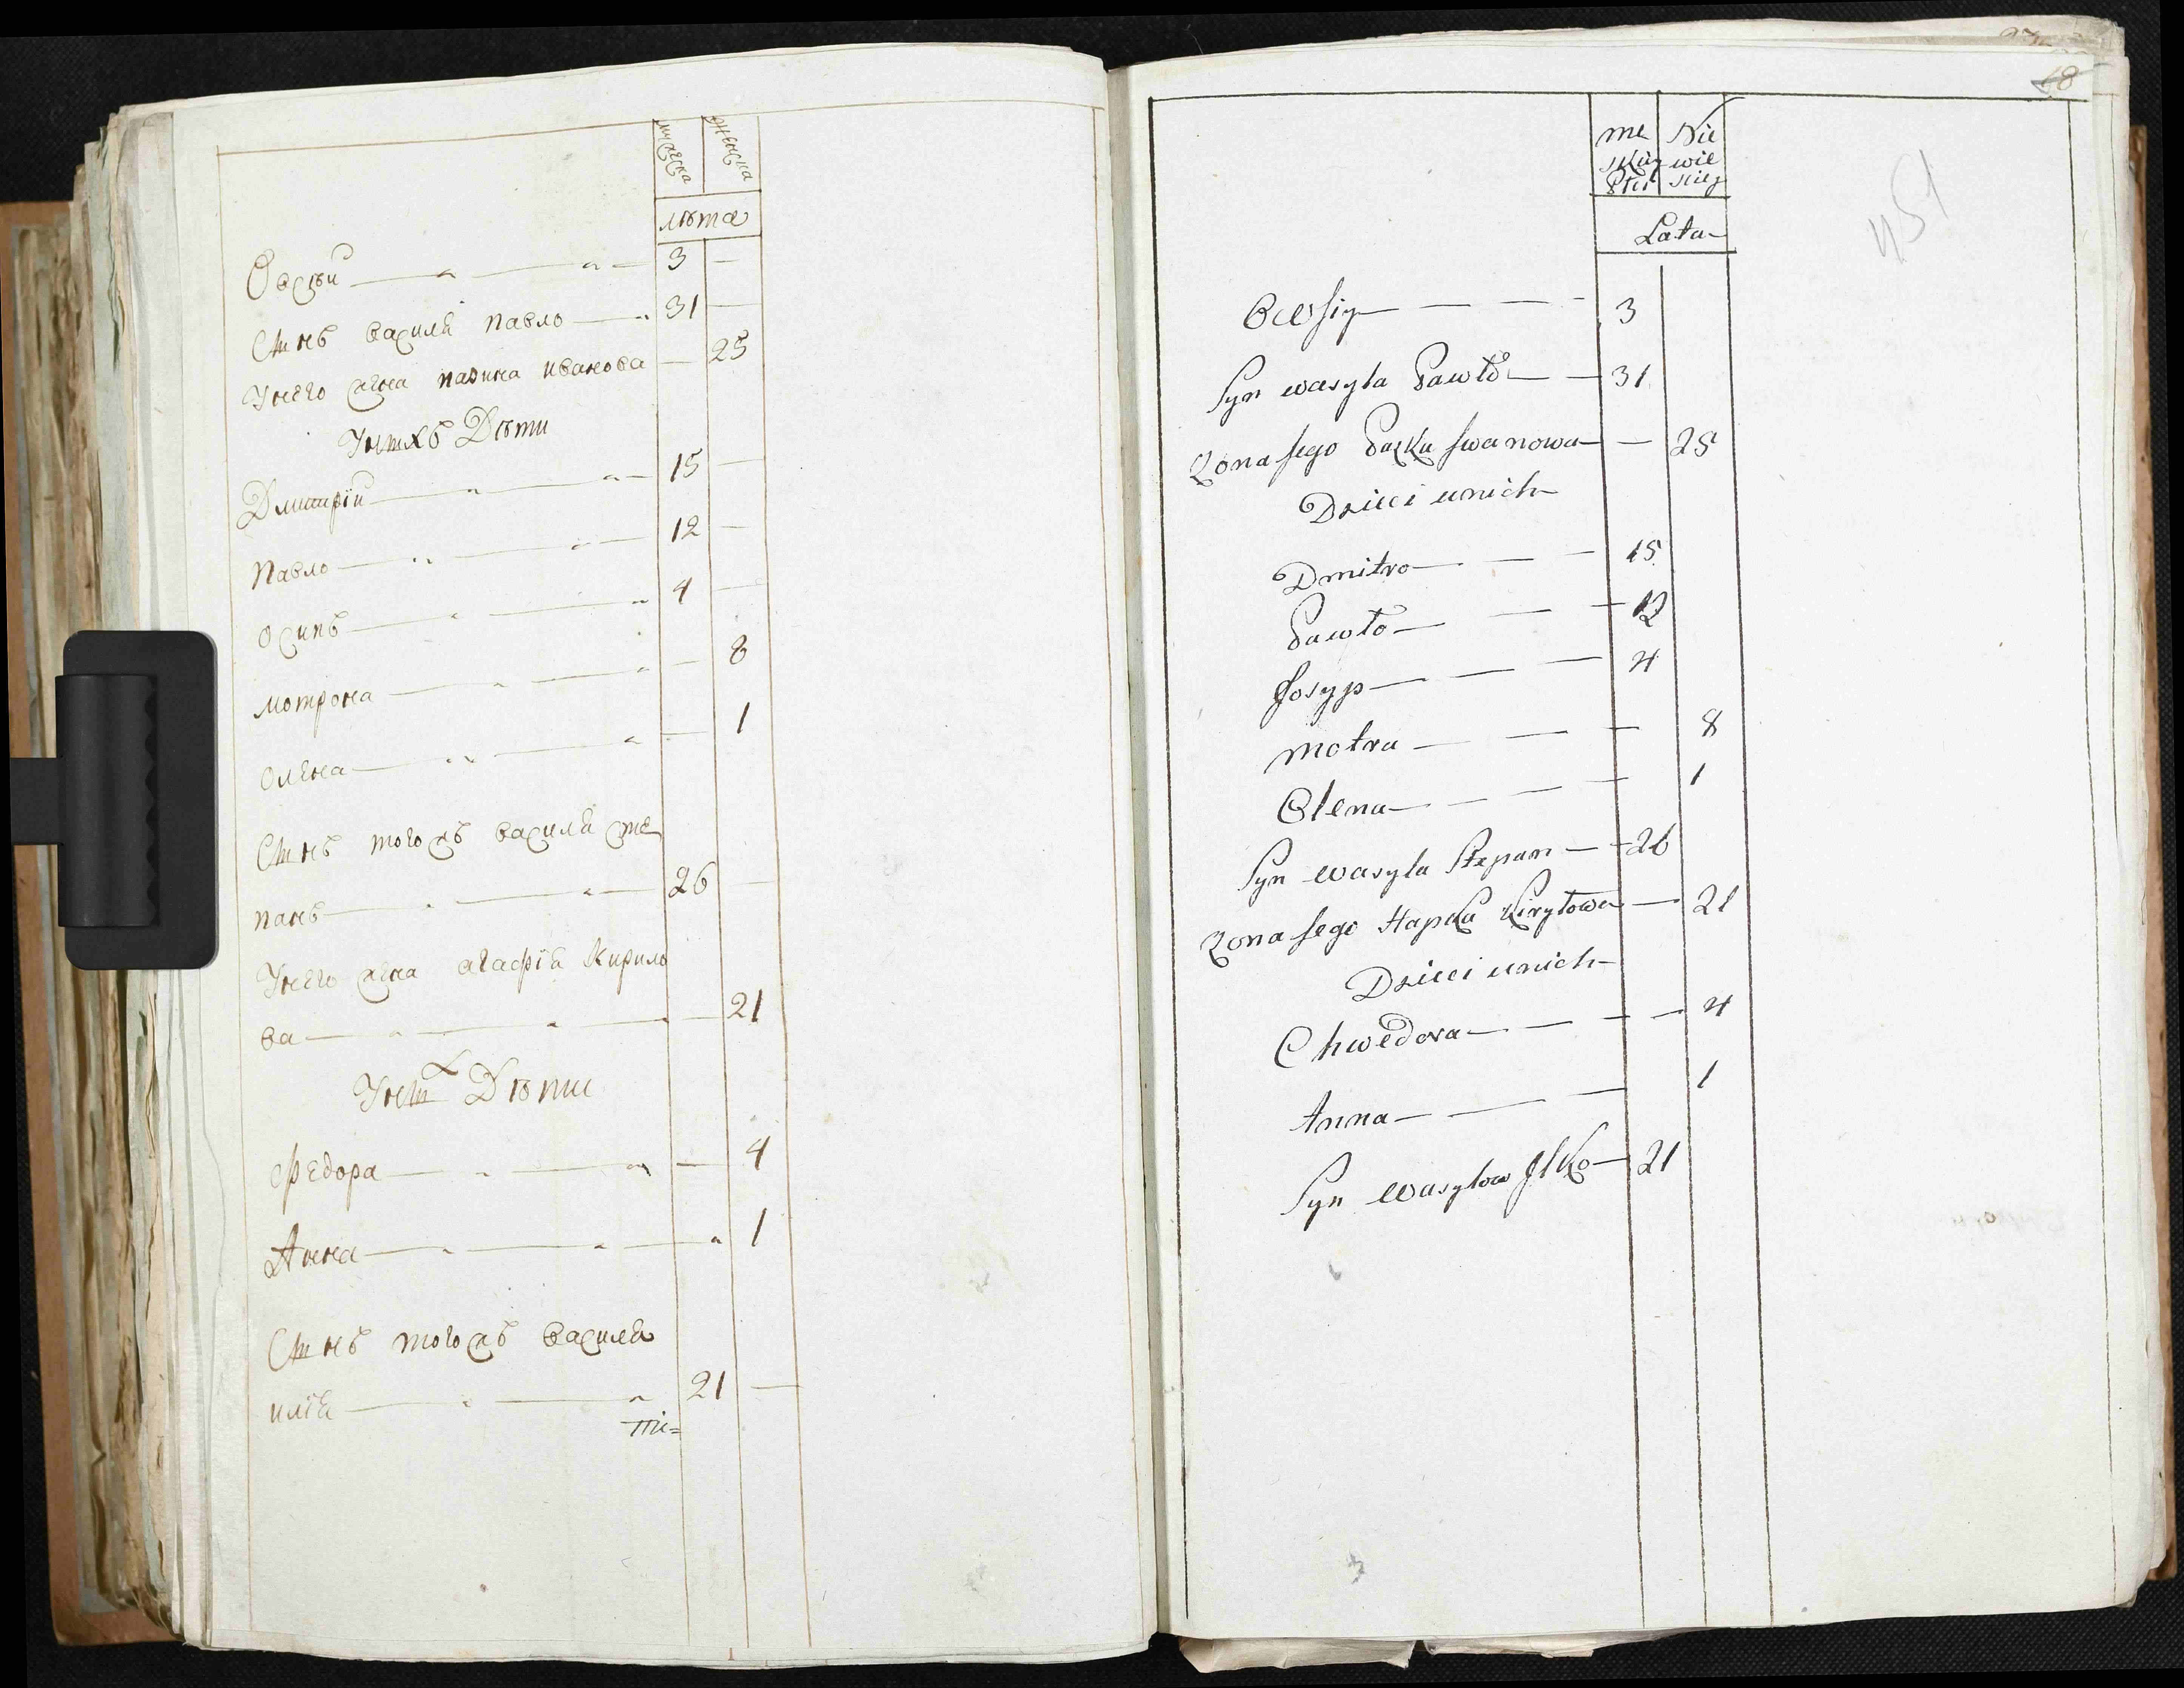 мужеска женска
лѣта
Овсѣй 3 —
Сынъ василя павло 31 —
Унего жена пазика иванова — 25
Унихъ Дѣти
Дмитрій 15 —
павло 12 —
осипъ 4 —
мотрона — 8
олена — 1
Сынъ тогожъ василя сте
панъ 26 —
Унего жена агафія Кирило
ва — 21
Уних Дѣти
федора — 4
Анна 1
Сынъ тогожъ василя
илія 21 —
18
me Nie
skiey wie
Płci skiey
Lata
451
Owsiy 3
Syn wasyla Pawło 31
Zona jego Pazka Jwanowa — 25
Dzieci unich
Dmitro 15
Pawło 12
Josyp 4
Motra 8
Olena 1
Syn wasyla Stepan 26
Zona jego Hapka Kiryłowa 21
Dzieci unich
Chwedora 4
Anna 1
Syn wasylow Jlko 21